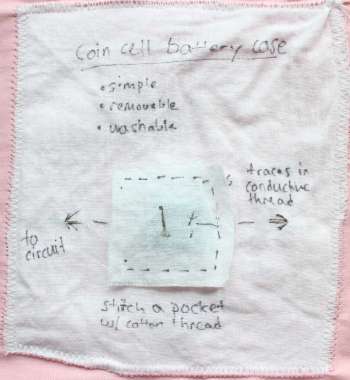 coin cell battery case
• simple
• removable
• washable
traces in
conductive
thread
to
circuit
stitch a pocket
w/ cotton thread